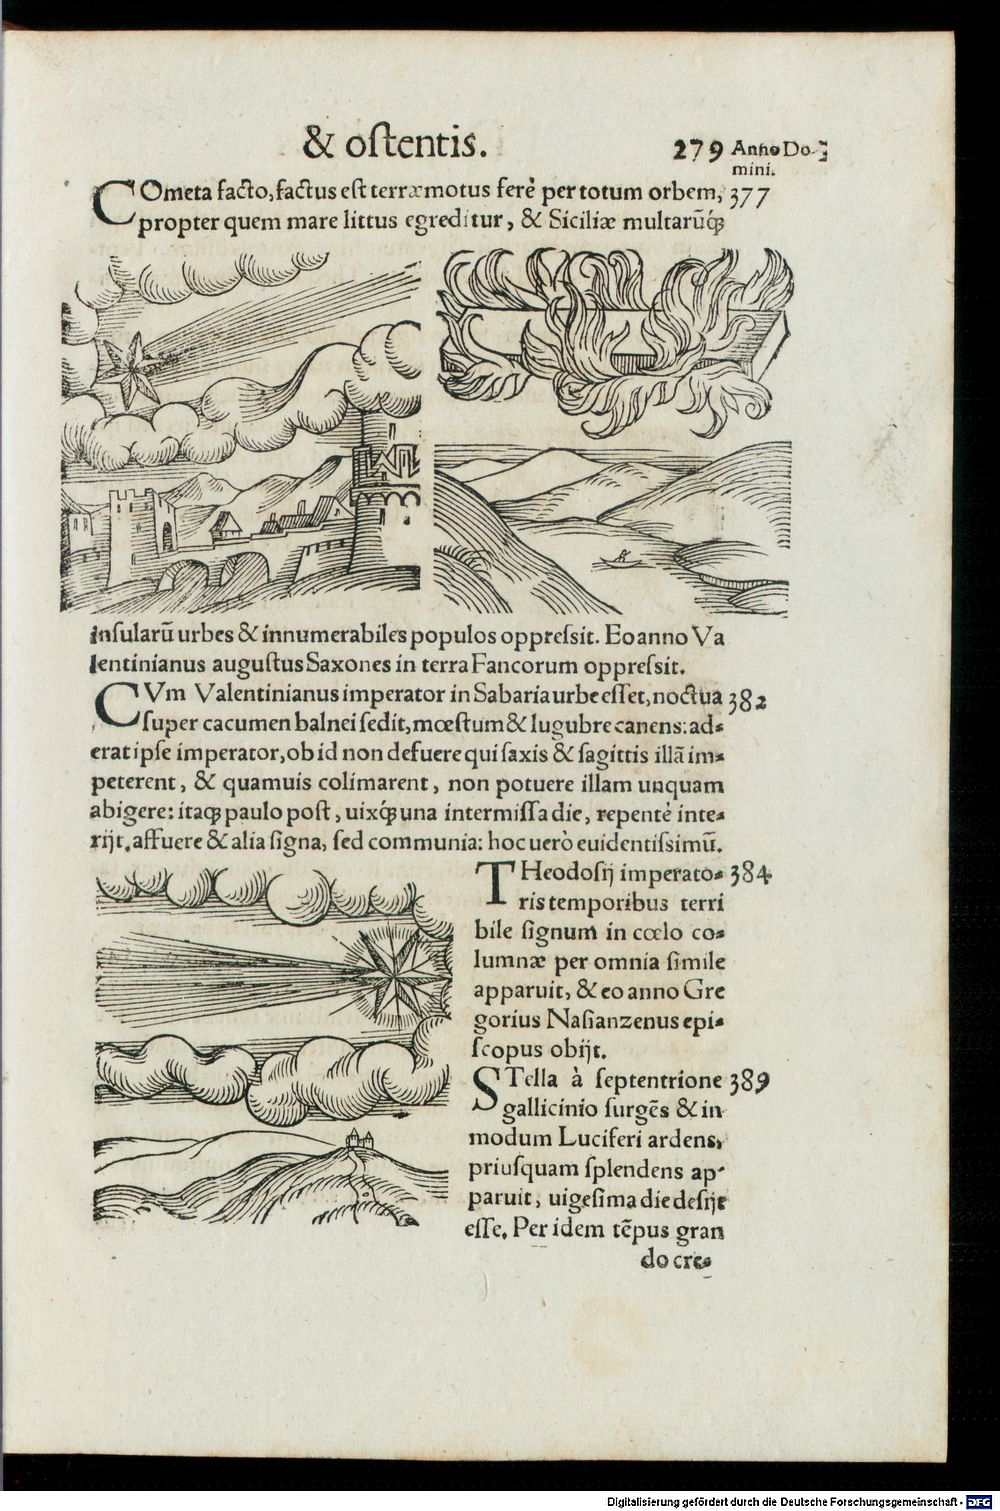 & oſtentis.
279 Anno Do-
mini.
COmeta facto, factus eſt terræmotus ferè per totum orbem, 377
propter quem mare littus egreditur, & Siciliæ multarũq́;
inſularũ urbes & innumerabiles populos oppreſsit. Eo anno Va
lentinianus auguſtus Saxones in terra Fancorum oppreſsit.
CVm Valentinianus imperator in Sabaria urbe eſſet, noctua 382
ſuper cacumen balnei ſedit, mœſtum & lugubre canens: ad-
erat ipſe imperator, ob id non defuere qui ſaxis & ſagittis illã im-
peterent, & quamuis colimarent, non potuere illam unquam
abigere: itaq; paulo poſt, uixq́; una intermiſſa die, repentè inte-
rijt. affuere & alia ſigna, ſed communia: hoc uerò euidentiſsimũ.
THeodoſij imperato- 384
ris temporibus terri
bile ſignum in cœlo co-
lumnæ per omnia ſimile
apparuit, & eo anno Gre
gorius Naſianzenus epi-
ſcopus obijt.
STella à ſeptentrione 389
gallicinio ſurgẽs & in
modum Luciferi ardens,
priuſquam ſplendens ap-
paruit, uigeſima die deſijt
eſſe. Per idem tẽpus gran
do cre-
Digitalisierung gefördert durch die Deutsche Forschungsgemeinschaft - DFG